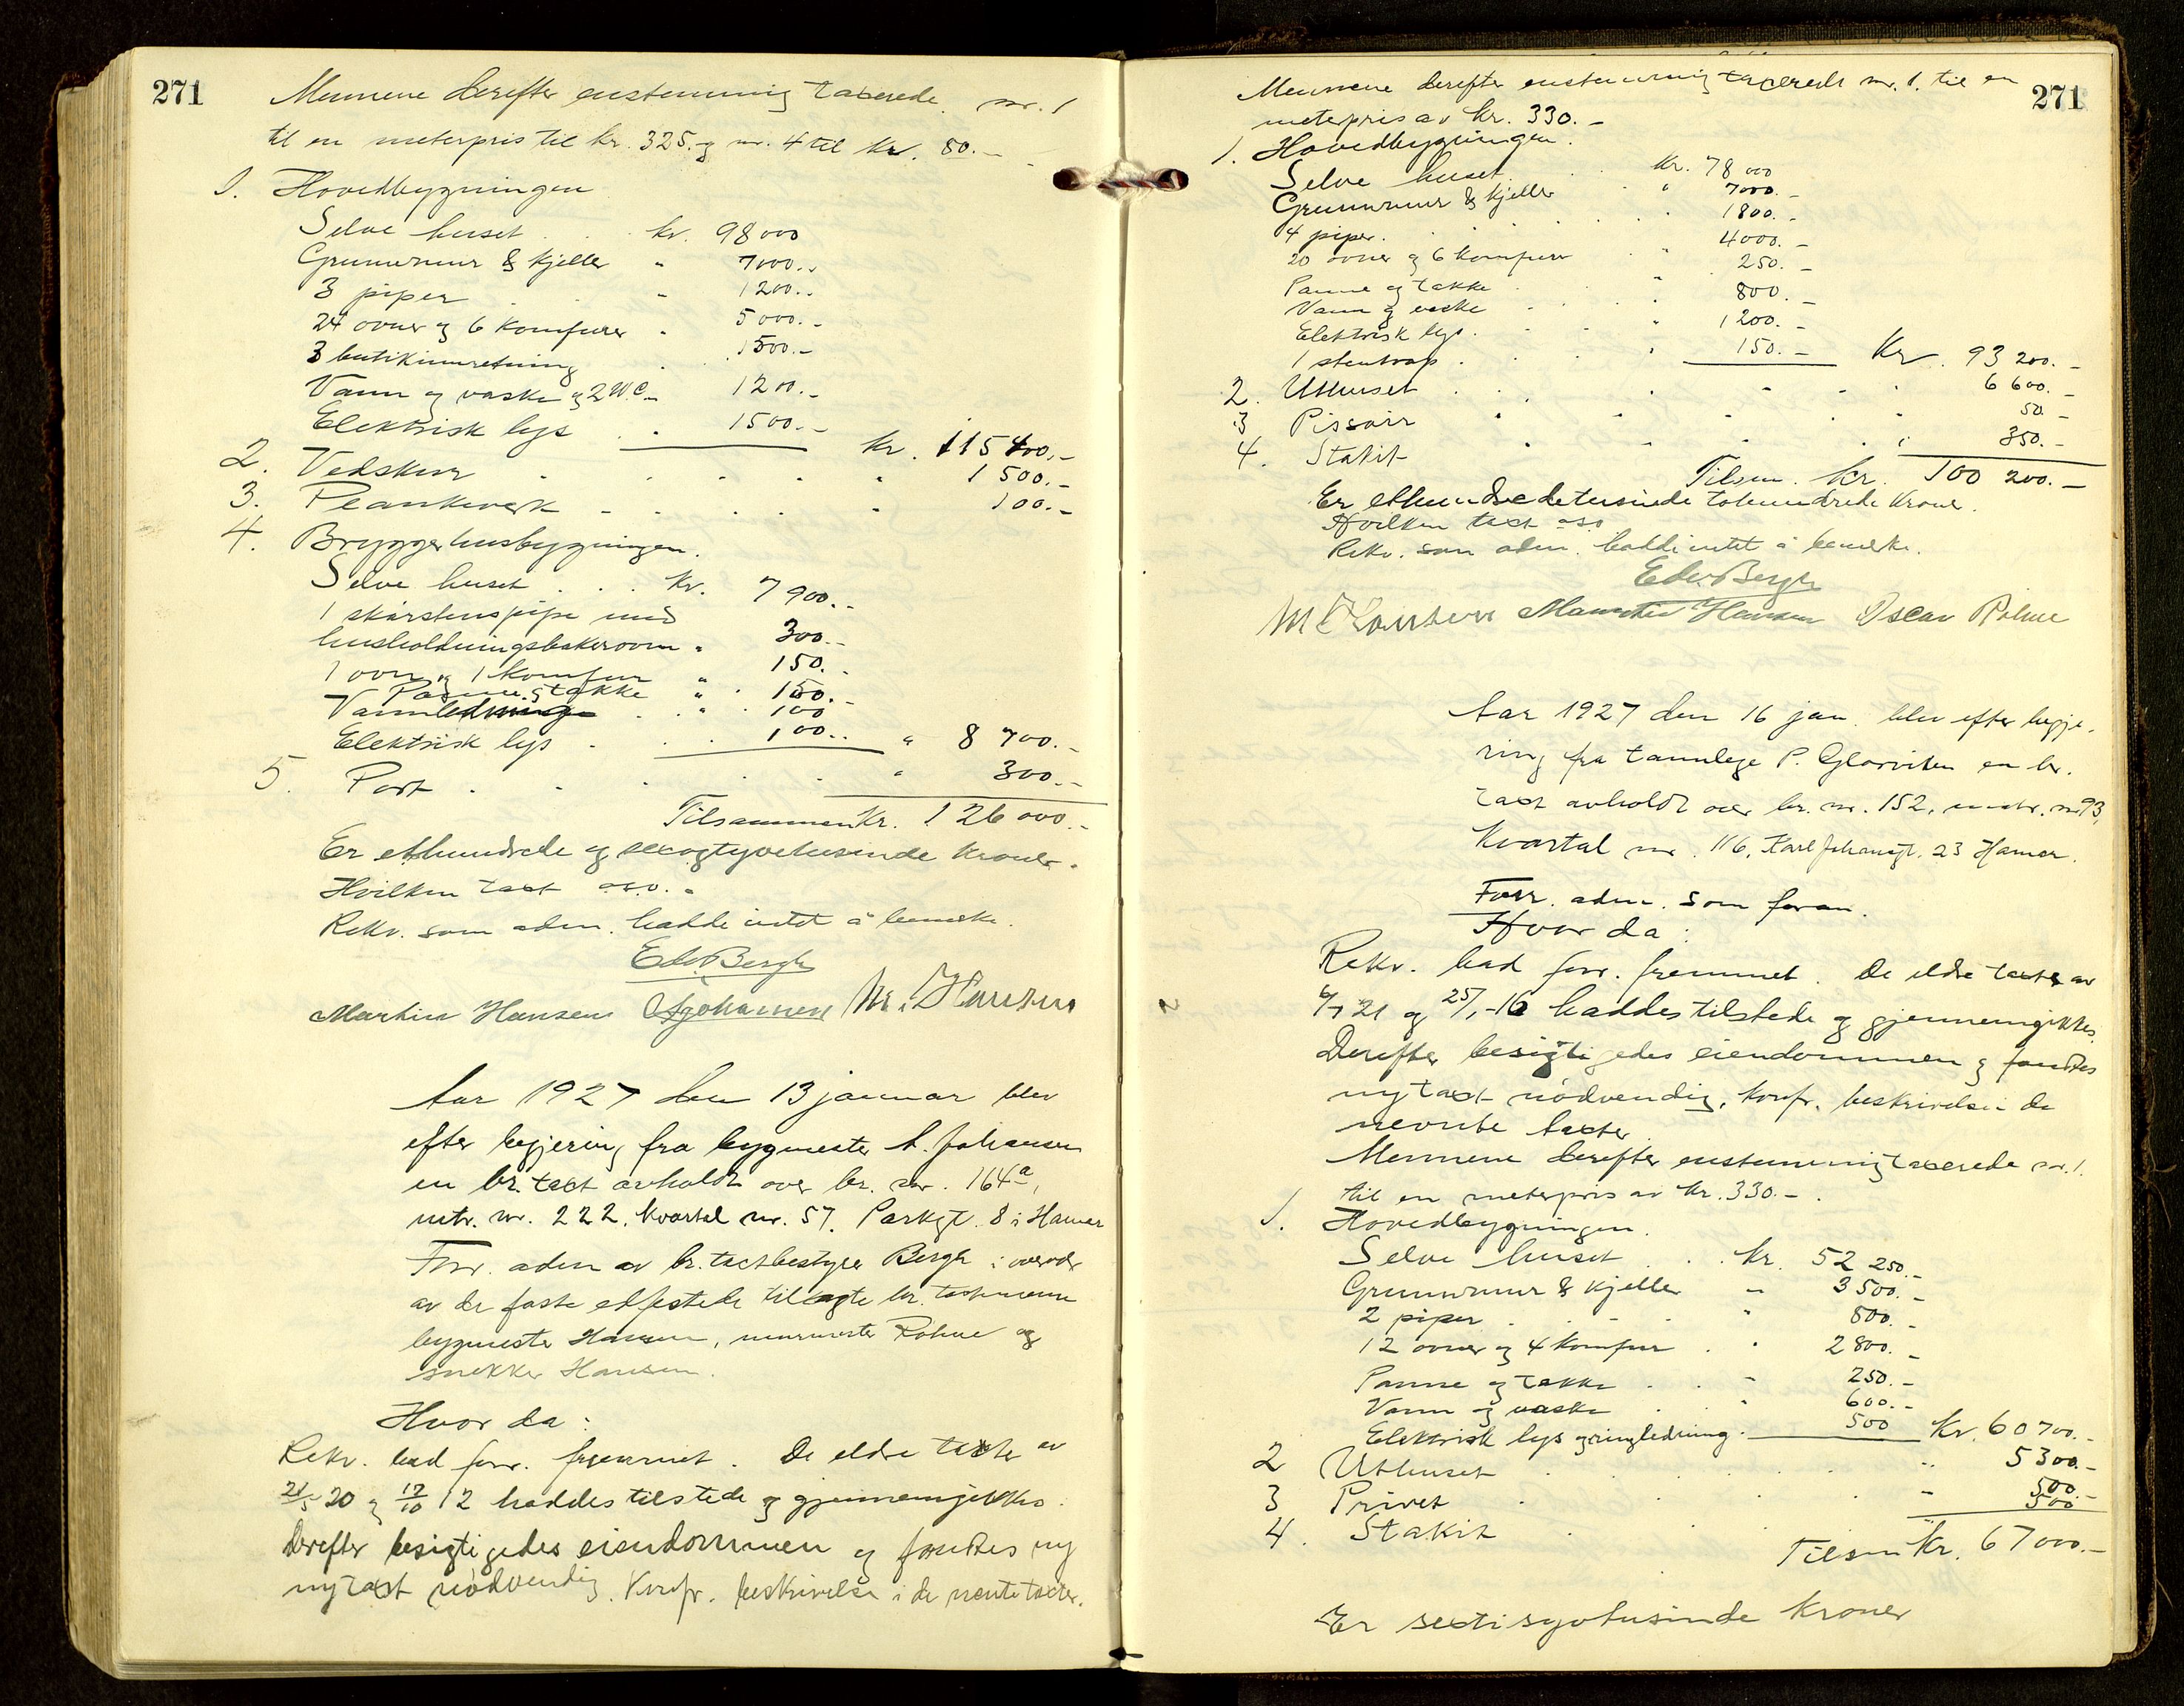 271
Mennene derefter enstemmig taxerede nr. 1
til en meterpris til kr. 325.- og nr. 4 til kr. 80.-
1. Hovedbygningen
Selve huset . . kr. 98 000
Grunnmur & kjeller " 7000.-
3 piper . . " 1200.-
24 ovner og 6 komfurer " 5000.-
3 butikinnretning . 1500.-
Vann og vaske og 2 W.C. 1200.-
Elektrisk lys . . 1500.- kr. 115400.-
2. Vedskur . . . . . " 1500.-
3. Plankverk . . . . " 100.-
4. Bryggerhusbygningen.
Selve huset . . . kr. 7900.-
1 skorstenspipe med
husholdningsbakerovn " 300.-
1 ovn og 1 komfur " 150.-
Panne og takke " 150.-
Vannledning . . " 100
Elektrisk lys . . . 100.- " 8700.-
5. Port . . . . . " 300.-
Tilsammen kr. 126000.-
Er ethundrede og sexogtyvetusinde kroner.
Hvilken taxt o.s.v.
Rekv. som adm. hadde intet å bemerke.
Edv. Bergh
Martin Hansen A Johansen M. Hansen
Aar 1927 den 13 januar blev
efter begjering fra bygmester A. Johansen
en br. taxt avholdt over br. nr. 164a,
matr. nr. 222. Kvartal nr. 57. Parkgt. 8 i Hamar
Forr. adm av br. taxtbestyrer Bergh i overvær
av de faste edfestede tillagte br. taxtmenn
bygmester Hansen, murmester Røhne og
snekker Hansen.
Hvor da:
Rekv. bad forr. fremmet. De eldre taxter av
21/5 20 og 17/10 12 haddes tilstede og gjennemgikkes.
Derefter besigtigedes eiendommen og fandtes ny
ny taxt nødvendig. Konfr. beskrivelse i de nevnte taxter.
271
Mennene derefter enstemmig taxerede nr. 1. til en
meterpris av kr. 330.-
1. Hovedbygningen.
Selve huset . . kr. 78 000
Grunnmur & kjeller " 7000.-
4 piper. . . . . 1800.-
20 ovner og 6 komfurer " 4000.-
Panne og takke . " 250.-
Vann og vaske . . " 800.-
Elektrisk lys . . " 1200.-
1 stentrap . . . " 150.- Kr. 93 200.-
2. Uthuset . . . . . . 6600.-
3 Pissoir . . . . . 50.-
4. Stakit . . . . . 350.-
Tilsm. kr. 100 200.-
Er ethundredetusinde tohundrede kroner.
Hvilken taxt o.s.v
Rekv. som adm. hadde intet å bemerke.
Edv. Bergh
M. Hansen Martin Hansen Oscar Röhne
Aar 1927 den 16 jan. blev efter begje-
ring fra tannlege P. Glorviken en br.
taxt avholdt over br. nr. 152, matr. nr 93,
Kvartal nr. 116, Karl Johansgt. 23 Hamar.
Forr. adm. som foran.
Hvor da:
Rekv. bad forr. fremmet. De eldre taxter av
6/7 21 og 25/1 -16 haddes tilstede og gjennemgikkes.
Derefter besigtigedes eiendommen og fandtes
ny taxt nødvendig. Konfr. beskrivelse i de
nevnte taxter.
Mennene derefter enstemmig taxerede nr. 1.
til en meterpris av kr. 330.-.
1. Hovedbygningen.
Selve huset . . kr. 52 250.-
Grunnmur & kjeller " 3500.-
2 piper . . . " 800.-
12 ovner og 4 komfur . " 2800.-
Panne og takke . . " 250.-
Vann og vaske . . " 600.-
Elektrisk lys og ringledning . 500 Kr. 60700.-
2 Uthuset . . . . . " 5300.-
3 Privet . . . . . " 500.-
4. Stakit . . . . . " 500
Tilsm kr. 67000.-
Er sextisyvtusinde kroner